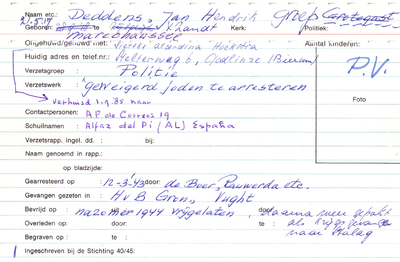 Naam etc.: Deddens, Jan Hendrik Groep Grotegast
21.5.17 Geboren: te klandt Kerk: Politiek:
marechaussee
Ongehuwd/gehuwd met: Alerdina Hoekstra Aantal kinderen:
Huidig adres en telef.nr.: Helterweg 6, Godlinze (Bierum)
Verzetsgroep: Politie P.V.
Verzetswerk: geweigerd Joden te arresteren
verhuisd 1.9.'85 naar Foto
Contactpersonen: A.P. de Correos 19
Schuilnamen: Alfaz del Pi (AL) España
Verzetsrapp. ingel. dd.: bij:
Naam genoemd in rapp.:
op bladzijde:
Gearresteerd op 12-3-'43 door: de Boer, Rauwerda etc.
Gevangen gezeten in: HvB Gron, Vught
Bevrijd op: nazomer 1944 vrijgelaten, daarna weer gepakt
Overleden op: door: te: als krijgsgevangene
Begraven op: te: naar Stalag
Ingeschreven bij de Stichting 40/45: